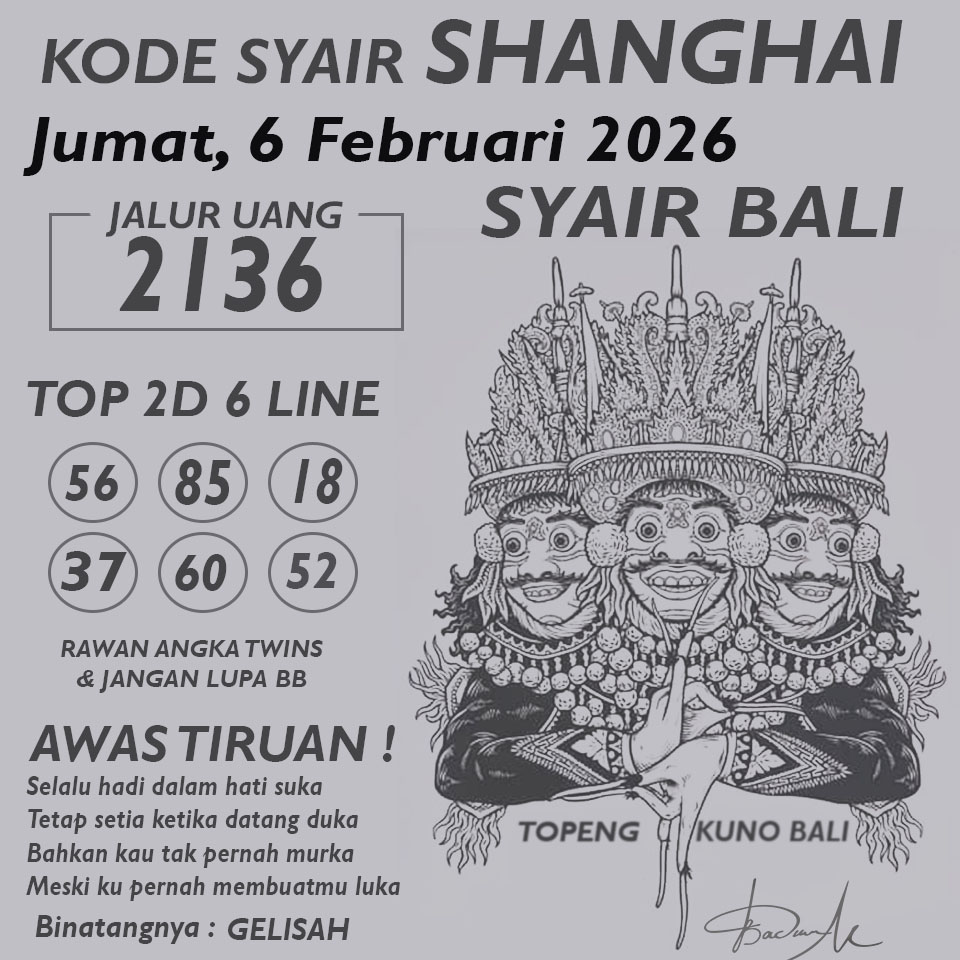 KODE SYAIR SHANGHAI
Jumat, 6 Februari 2026
SYAIR BALI
JALUR UANG
2136
TOP 2D 6 LINE
56 85 18
37 60 52
RAWAN ANGKA TWINS
& JANGAN LUPA BB
AWAS TIRUAN !
Selalu hadi dalam hati suka
Tetap setia ketika datang duka
Bahkan kau tak pernah murka
Meski ku pernah membuatmu luka
Binatangnya : GELISAH
TOPENG KUNO BALI